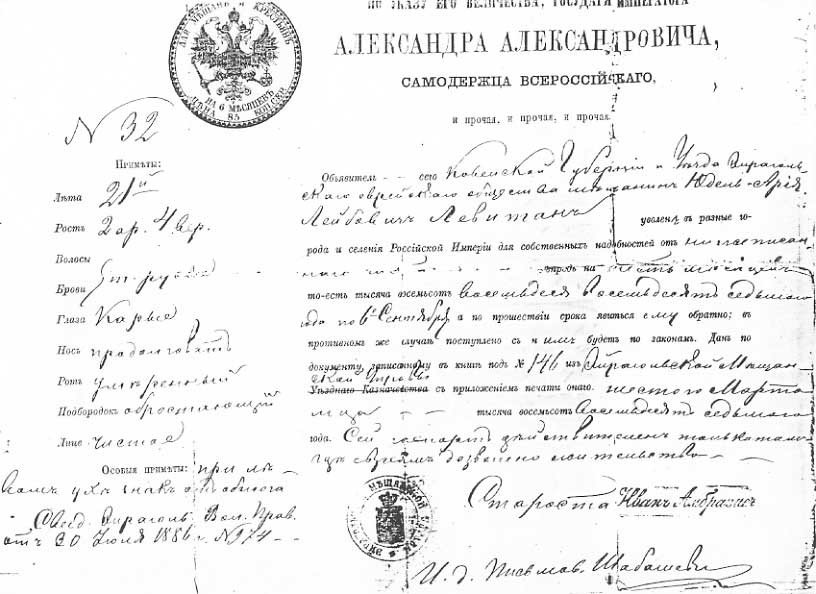 ПО УКАЗУ ЕГО ВЕЛИЧЕСТВА, ГОСУДАРЯ ИМПЕРАТОРА
АЛЕКСАНДРА АЛЕКСАНДРОВИЧА,
САМОДЕРЖЦА ВСЕРОССІЙСКАГО,
и прочая, и прочая, и прочая.
ДЛЯ МѢЩАНЪ И КРЕСТЬЯНЪ
НА 6 МѢСЯЦЕВЪ
ЦѢНА 85 КОП. СЕР.
N 32
Примѣты:
Лѣта 21
Ростъ 2 ар. 4 вер.
Волосы
Брови т. русые
Глаза Карые
Носъ продолговатъ
Ротъ умѣренный
Подбородокъ обростающій
Лице Чистое
Особыя примѣты: при лѣ-
вомъ ухѣ знакъ
Свид. Эйрагол. Вол. Прав.
отъ 30 Іюля 1886 г. №
Объявитель сего Ковенской Губерніи и Уѣзда Эйраголь-
скаго еврейскаго общества мѣщанинъ Юдель-Арія
Лейбовичъ Левитанъ уволенъ въ разные го-
рода и селенія Россійской Имперіи для собственныхъ надобностей отъ нижеписан-
наго впредь на шесть мѣсяцевъ
то-есть тысяча восемьсотъ восемьдесятъ седьмаго
года по 6е Сентября а по прошествіи срока явиться ему обратно; въ
противномъ же случаѣ поступлено съ нимъ будетъ по законамъ. Данъ по
документу, записанному въ книгѣ подъ № 146 изъ Эйрагольской Мѣщан-
ской Управы
Уѣзднаго Казначейства съ приложеніемъ печати онаго. шестого Марта
мца тысяча восемьсотъ восемьдесятъ седьмаго
года. Сей паспортъ дѣйствителенъ только тамъ
гдѣ евреямъ дозволено жительство
Староста Иванъ Амбразисъ
И. д. Письмов. Шабашевичъ